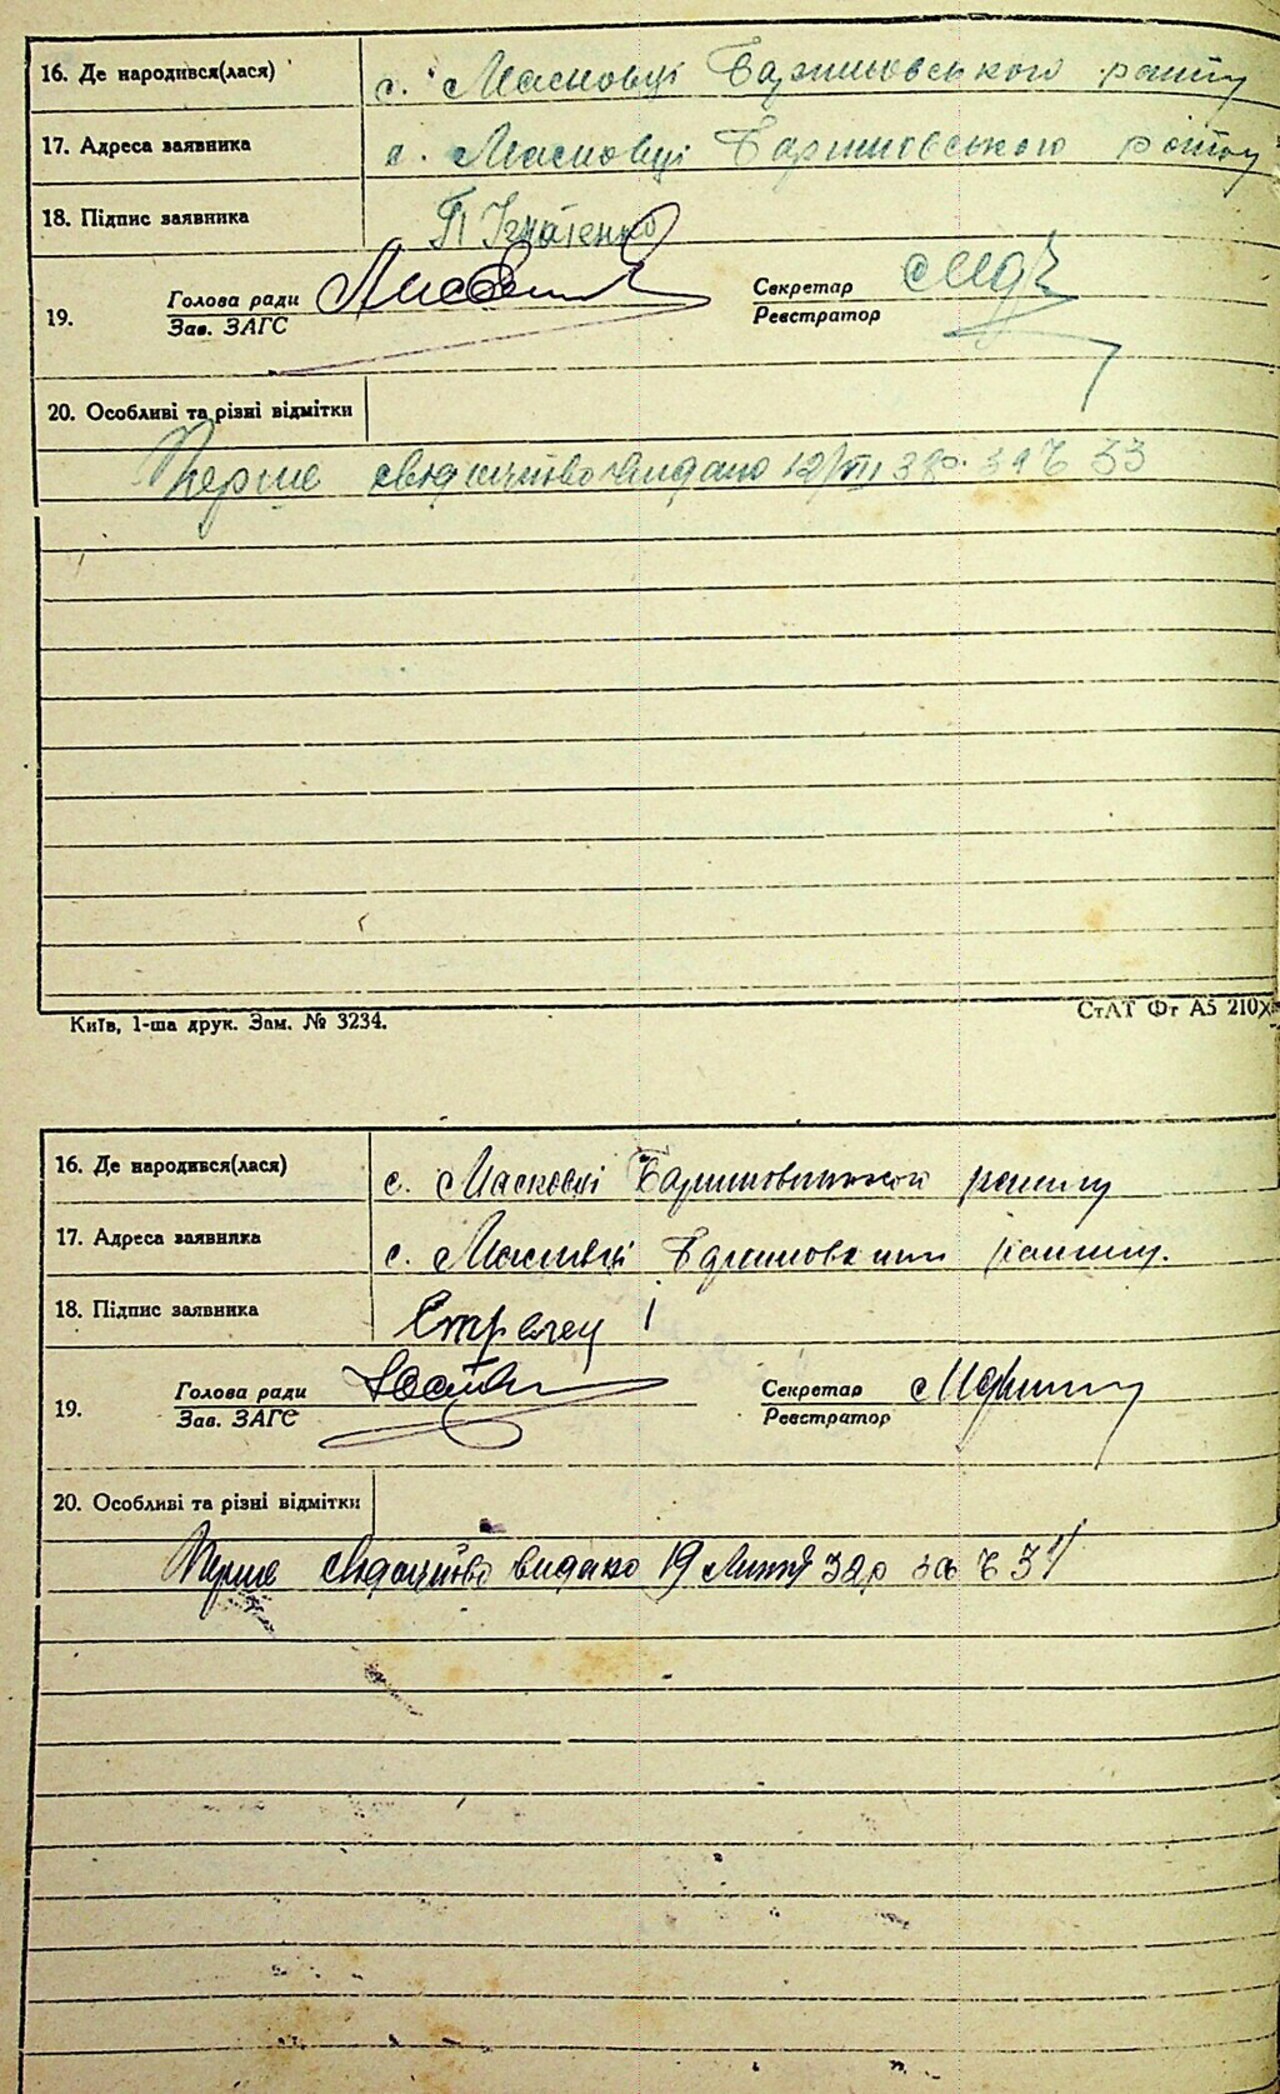 16. Де народився(лася) с. Масковці Баришовського району
17. Адреса заявника с. Масковці Баришовського району
18. Підпис заявника П Ігнатенко
19. Голова ради Секретар
Зав. ЗАГС Реєстратор
20. Особливі та різні відмітки
Перше свідоцтво видано 12/VII 38р. за № 33
Київ, 1-ша друк. Зам. № 3234. СтАТ Фг А5 210X
16. Де народився(лася) с. Масковці району
17. Адреса заявника с. Масковці району.
18. Підпис заявника
19. Голова ради Секретар
Зав. ЗАГС Реєстратор
20. Особливі та різні відмітки
Перше свідоцтво видано 19 Липня за № 34